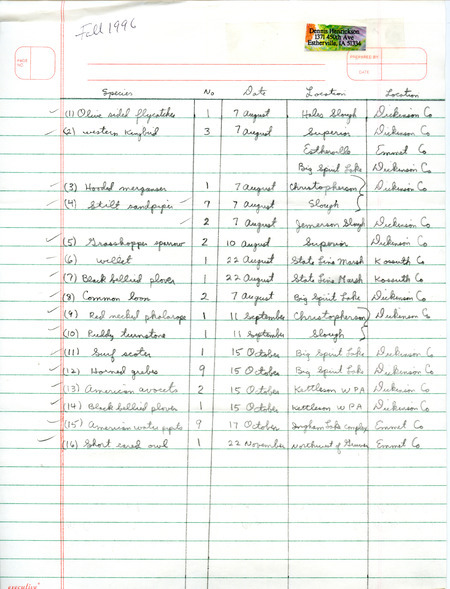 Fall 1996
Dennis Henrickson
1371 450th Ave
Estherville, IA 51334
PAGE NO
PREPARED BY
DATE
Species No Date Location Location
(1) Olive sided flycatcher 1 7 August Hales Slough Dickinson Co
(2) western Kingbird 3 7 August Superior Dickinson Co
Estherville Emmet Co
Big Spirit Lake Dickinson Co
(3) Hooded merganser 1 7 August Christopherson Dickinson Co
(4) Stilt sandpiper 7 7 August Slough
2 Jemerson Slough Dickinson Co
(5) Grasshopper sparrow 2 10 August Superior Dickinson Co
(6) willet 1 22 August State Line Marsh Kossuth Co
(7) Black bellied plover 1 22 August State Line Marsh Kossuth Co
(8) Common loon 2 7 August Big Spirit Lake Dickinson Co
(9) Red necked phalarope 1 11 September Christopherson Dickinson Co
(10) Ruddy turnstone 1 11 September Slough
(11) Surf scoter 1 15 October Big Spirit Lake Dickinson Co
(12) Horned grebes 9 15 October Big Spirit Lake Dickinson Co
(13) American avocets 2 15 October Kettleson WPA Dickinson Co
(14) Black bellied plover 1 15 October Kettleson WPA Dickinson Co
(15) American water pipits 9 17 October Ingham Lake complex Emmet Co
(16) Short eared owl 1 22 November Northwest of Gruver Emmet Co
executive